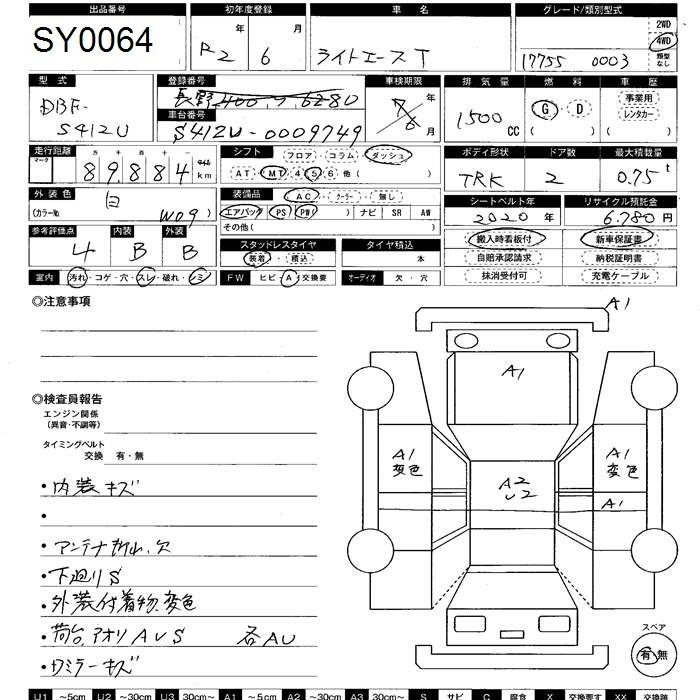 出品番号 初年度登録 車名 グレード/類別型式
SY0064 R2 年 6 月 ライトエースT 17755 0003 2WD 4WD 類型なし
型式 登録番号 車検期限 排気量 燃料 車歴
DBF- 長野400 つ 6280 R7 年 1500 cc G・D 事業用
S412U 車台番号 S412U-0009749 6 月 ( ) レンタカー
走行距離 十万 万 千 百 十 一 シフト フロア・コラム・ダッシュ ボディ形状 ドア数 最大積載量
マーク 89,884 マイル km AT・MT 4・5・6 他( ) TRK 2 0.75 t
外装色 白 装備品 AC・クーラー・無し シートベルト年 リサイクル預託金
(カラー№ W09 ) エアバック・PS・PW( ) ナビ SR AW 2020年 6,780円
参考評価点 内装 外装 その他( ) 搬入時看板付 新車保証書
4 B B スタッドレスタイヤ タイヤ積込 自賠承認請求 納税証明書
装着・積込 本 抹消受付可 充電ケーブル
室内 汚れ・コゲ・穴・スレ・破れ・ノミ FW ヒビ・A・交換要 オーディオ 欠・穴
◎注意事項
A1
A1
◎検査員報告
エンジン関係
(異音・不調等)
タイミングベルト
交換 有・無
A1 変色 A1 変色
・内装キズ
A2 U2
A1
・
・アンテナ折山、欠
・下廻りS
・外装付着物、変色
・荷台、アオリAUS 各AU
・ワミラーキズ
スペア
有・無
U1 ~5cm U2 ~30cm U3 30cm~ A1 ~5cm A2 ~30cm A3 30cm~ S サビ C 腐食 X 交換要す XX 交換跡